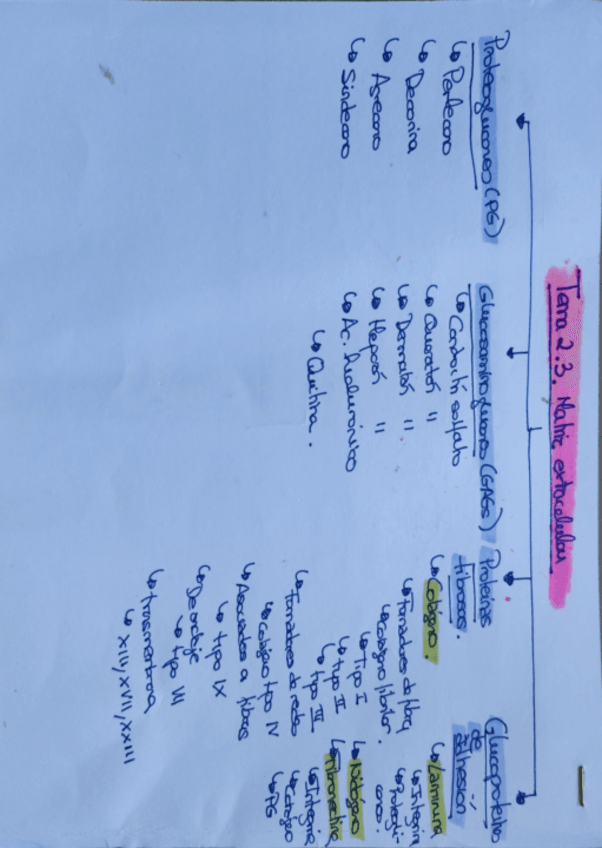 Tema 2.3. Matriz extracelular
Proteoglucanos (PG)
↳ Perlecano
↳ Decorina
↳ Agrecano
↳ Sindecano
Glucosaminoglucanos (GAGs)
↳ Condroitín sulfato
↳ Queratán "
↳ Dermatán "
↳ Heparán "
↳ Ac. hialurónico
↳ Quitina.
Proteínas
fibrosas.
↳ Colágeno.
↳ Formadores de fibra
↳ colágeno fibrilar.
↳ Tipo I
↳ tipo II
↳ tipo III
↳ Formadores de redes
↳ colágeno tipo IV
↳ Asociados a fibras
↳ tipo IX
↳ De anclaje
↳ tipo VII
↳ transmembrana
↳ XIII, XVII, XXIII
Glucoproteínas
de
adhesión
↳ Laminina
↳ Integrina
↳ Nidógeno
↳ Fibronectina
↳ Integrina
↳ Colágeno
↳ PG